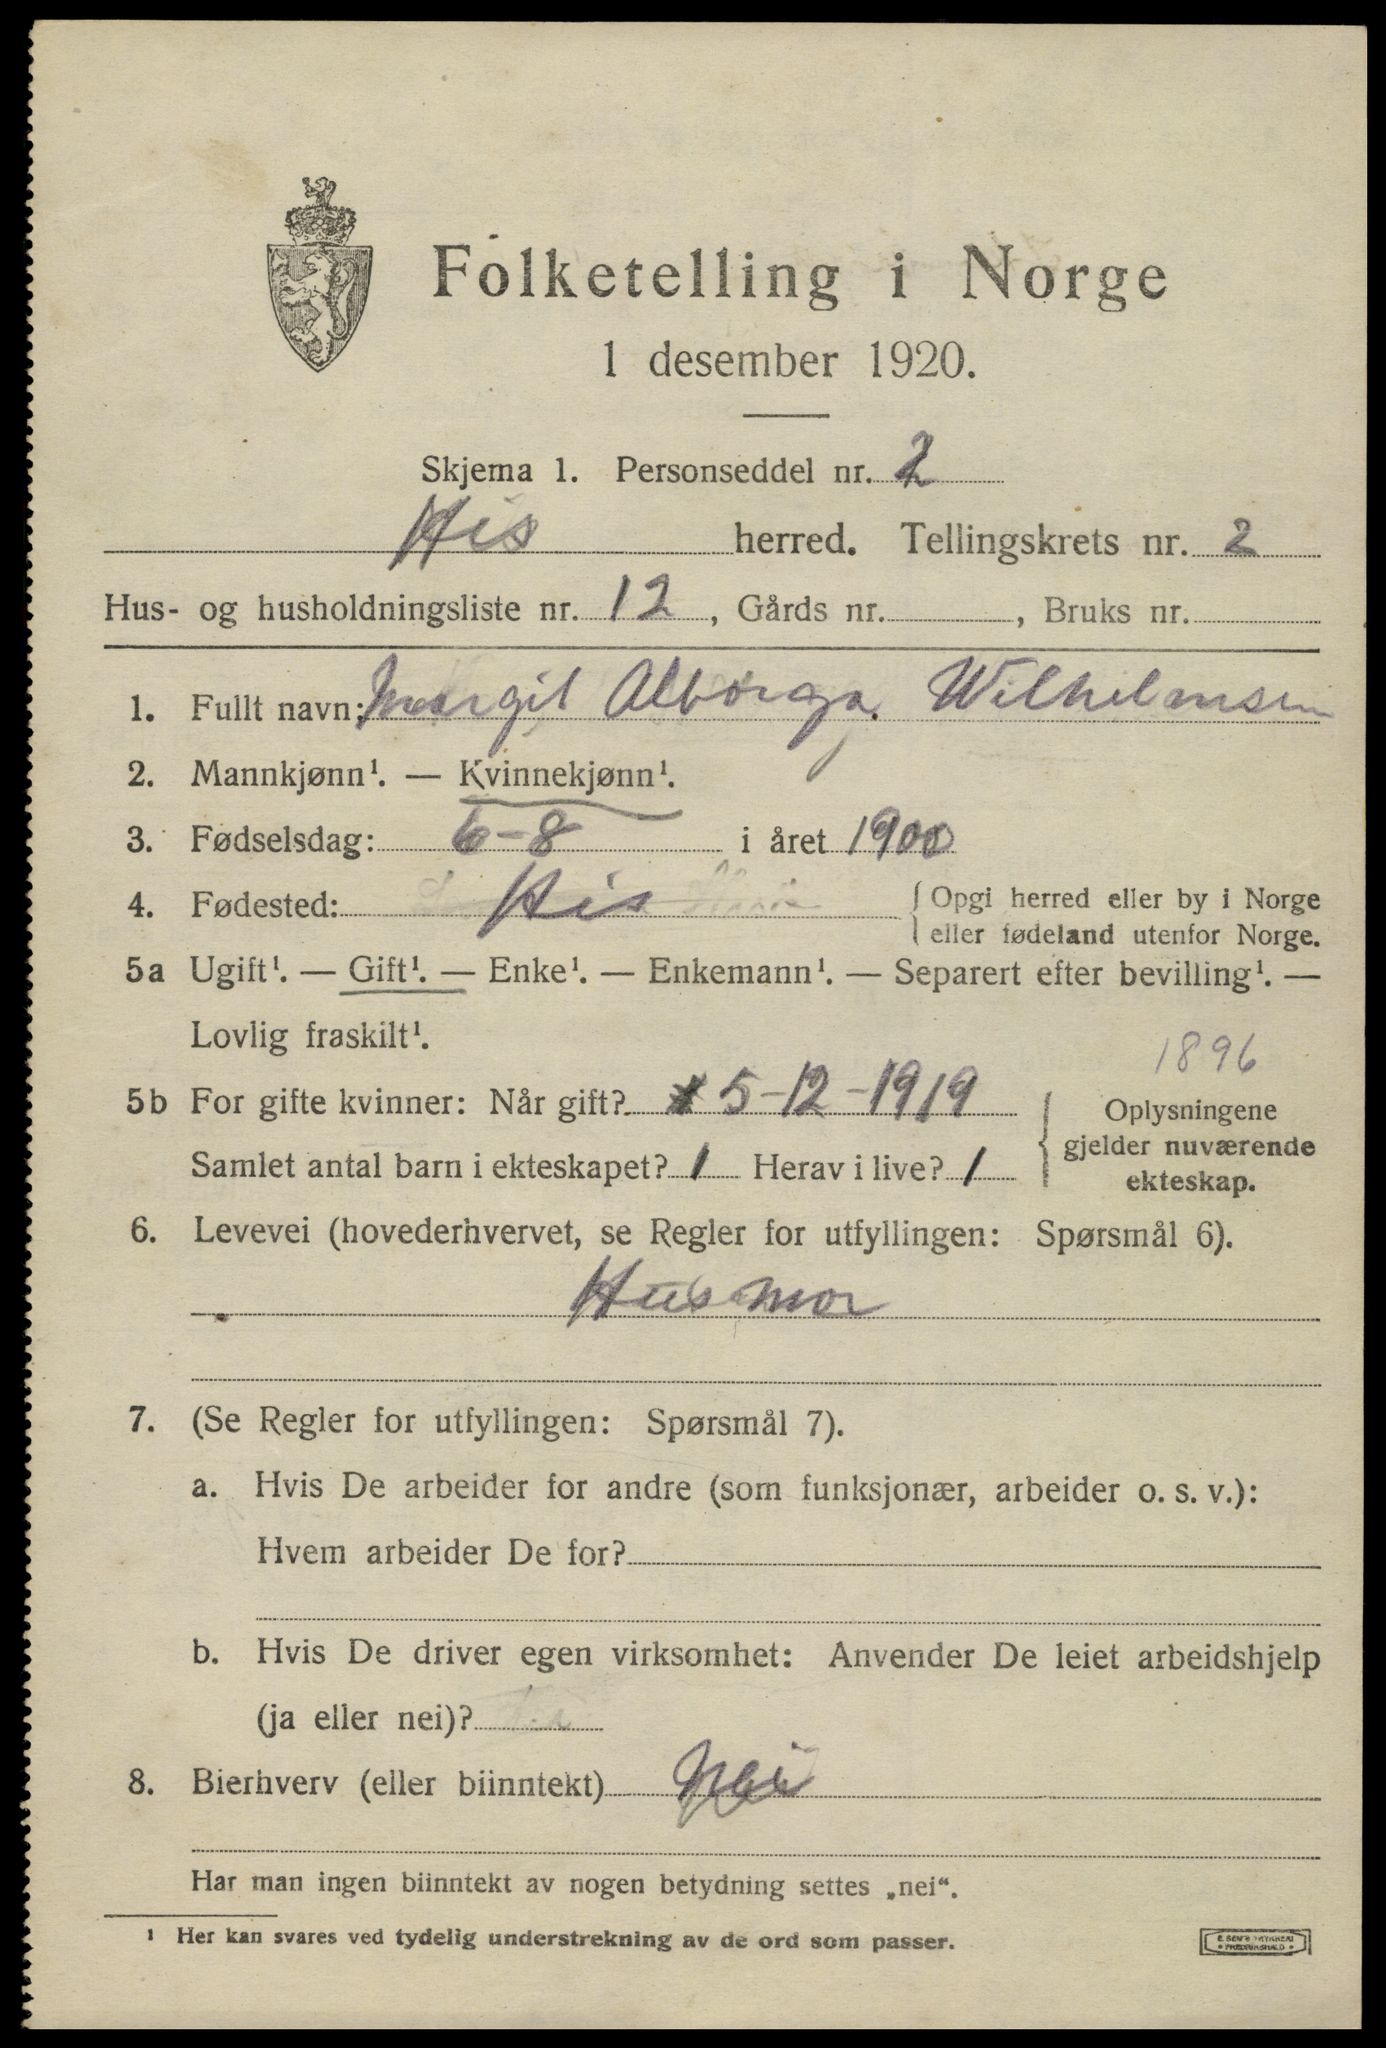 Folketelling i Norge
1 desember 1920.
Skjema 1. Personseddel nr. 2
His herred. Tellingskrets nr. 2
Hus- og husholdningsliste nr. 12, Gårds nr. , Bruks nr.
1. Fullt navn: Margit Alborga Wilhelmsen
2. Mannkjønn¹. — Kvinnekjønn¹.
3. Fødselsdag: 6-8 i året 1900
4. Fødested: His { Opgi herred eller by i Norge
eller fødeland utenfor Norge.
5a Ugift¹. — Gift¹. — Enke¹. — Enkemann¹. — Separert efter bevilling¹. —
Lovlig fraskilt¹.
1896
5b For gifte kvinner: Når gift? 5-12-1919
Samlet antal barn i ekteskapet? 1 Herav i live? 1
{ Oplysningene
gjelder nuværende
ekteskap.
6. Levevei (hovederhvervet, se Regler for utfyllingen: Spørsmål 6).
Husmor
7. (Se Regler for utfyllingen: Spørsmål 7).
a. Hvis De arbeider for andre (som funksjonær, arbeider o. s. v.):
Hvem arbeider De for?
b. Hvis De driver egen virksomhet: Anvender De leiet arbeidshjelp
(ja eller nei)?
8. Bierhverv (eller biinntekt) Nei
Har man ingen biinntekt av nogen betydning settes „nei“.
¹ Her kan svares ved tydelig understrekning av de ord som passer.